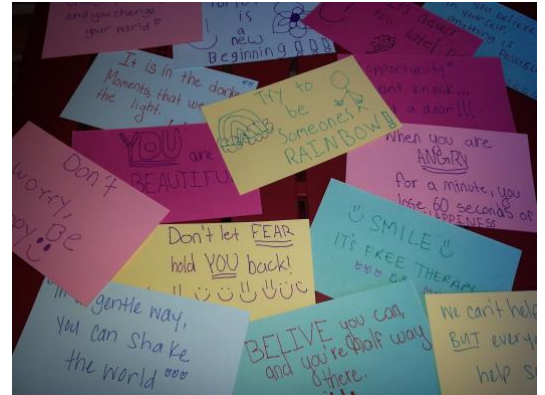 and you change
your world"
is
a
new
Beginning
Never
too
late
you believe
in yourself,
anything is
possible
It is in the dark
Moments that we
the light.
TRY to
be
Someone's
RAINBOW!!
opportunity"
knock...
a door!!!
YOU are
BEAUTIFUL
When you are
ANGRY
for a minute, you
lose 60 seconds of
HAPPINESS
Don't
worry,
Be
Don't let FEAR
hold YOU back!
SMILE
IT'S FREE THERAPY
gentle way,
you can shake
the world
BELIVE you can,
and you're half way
there.
We can't help
BUT
help